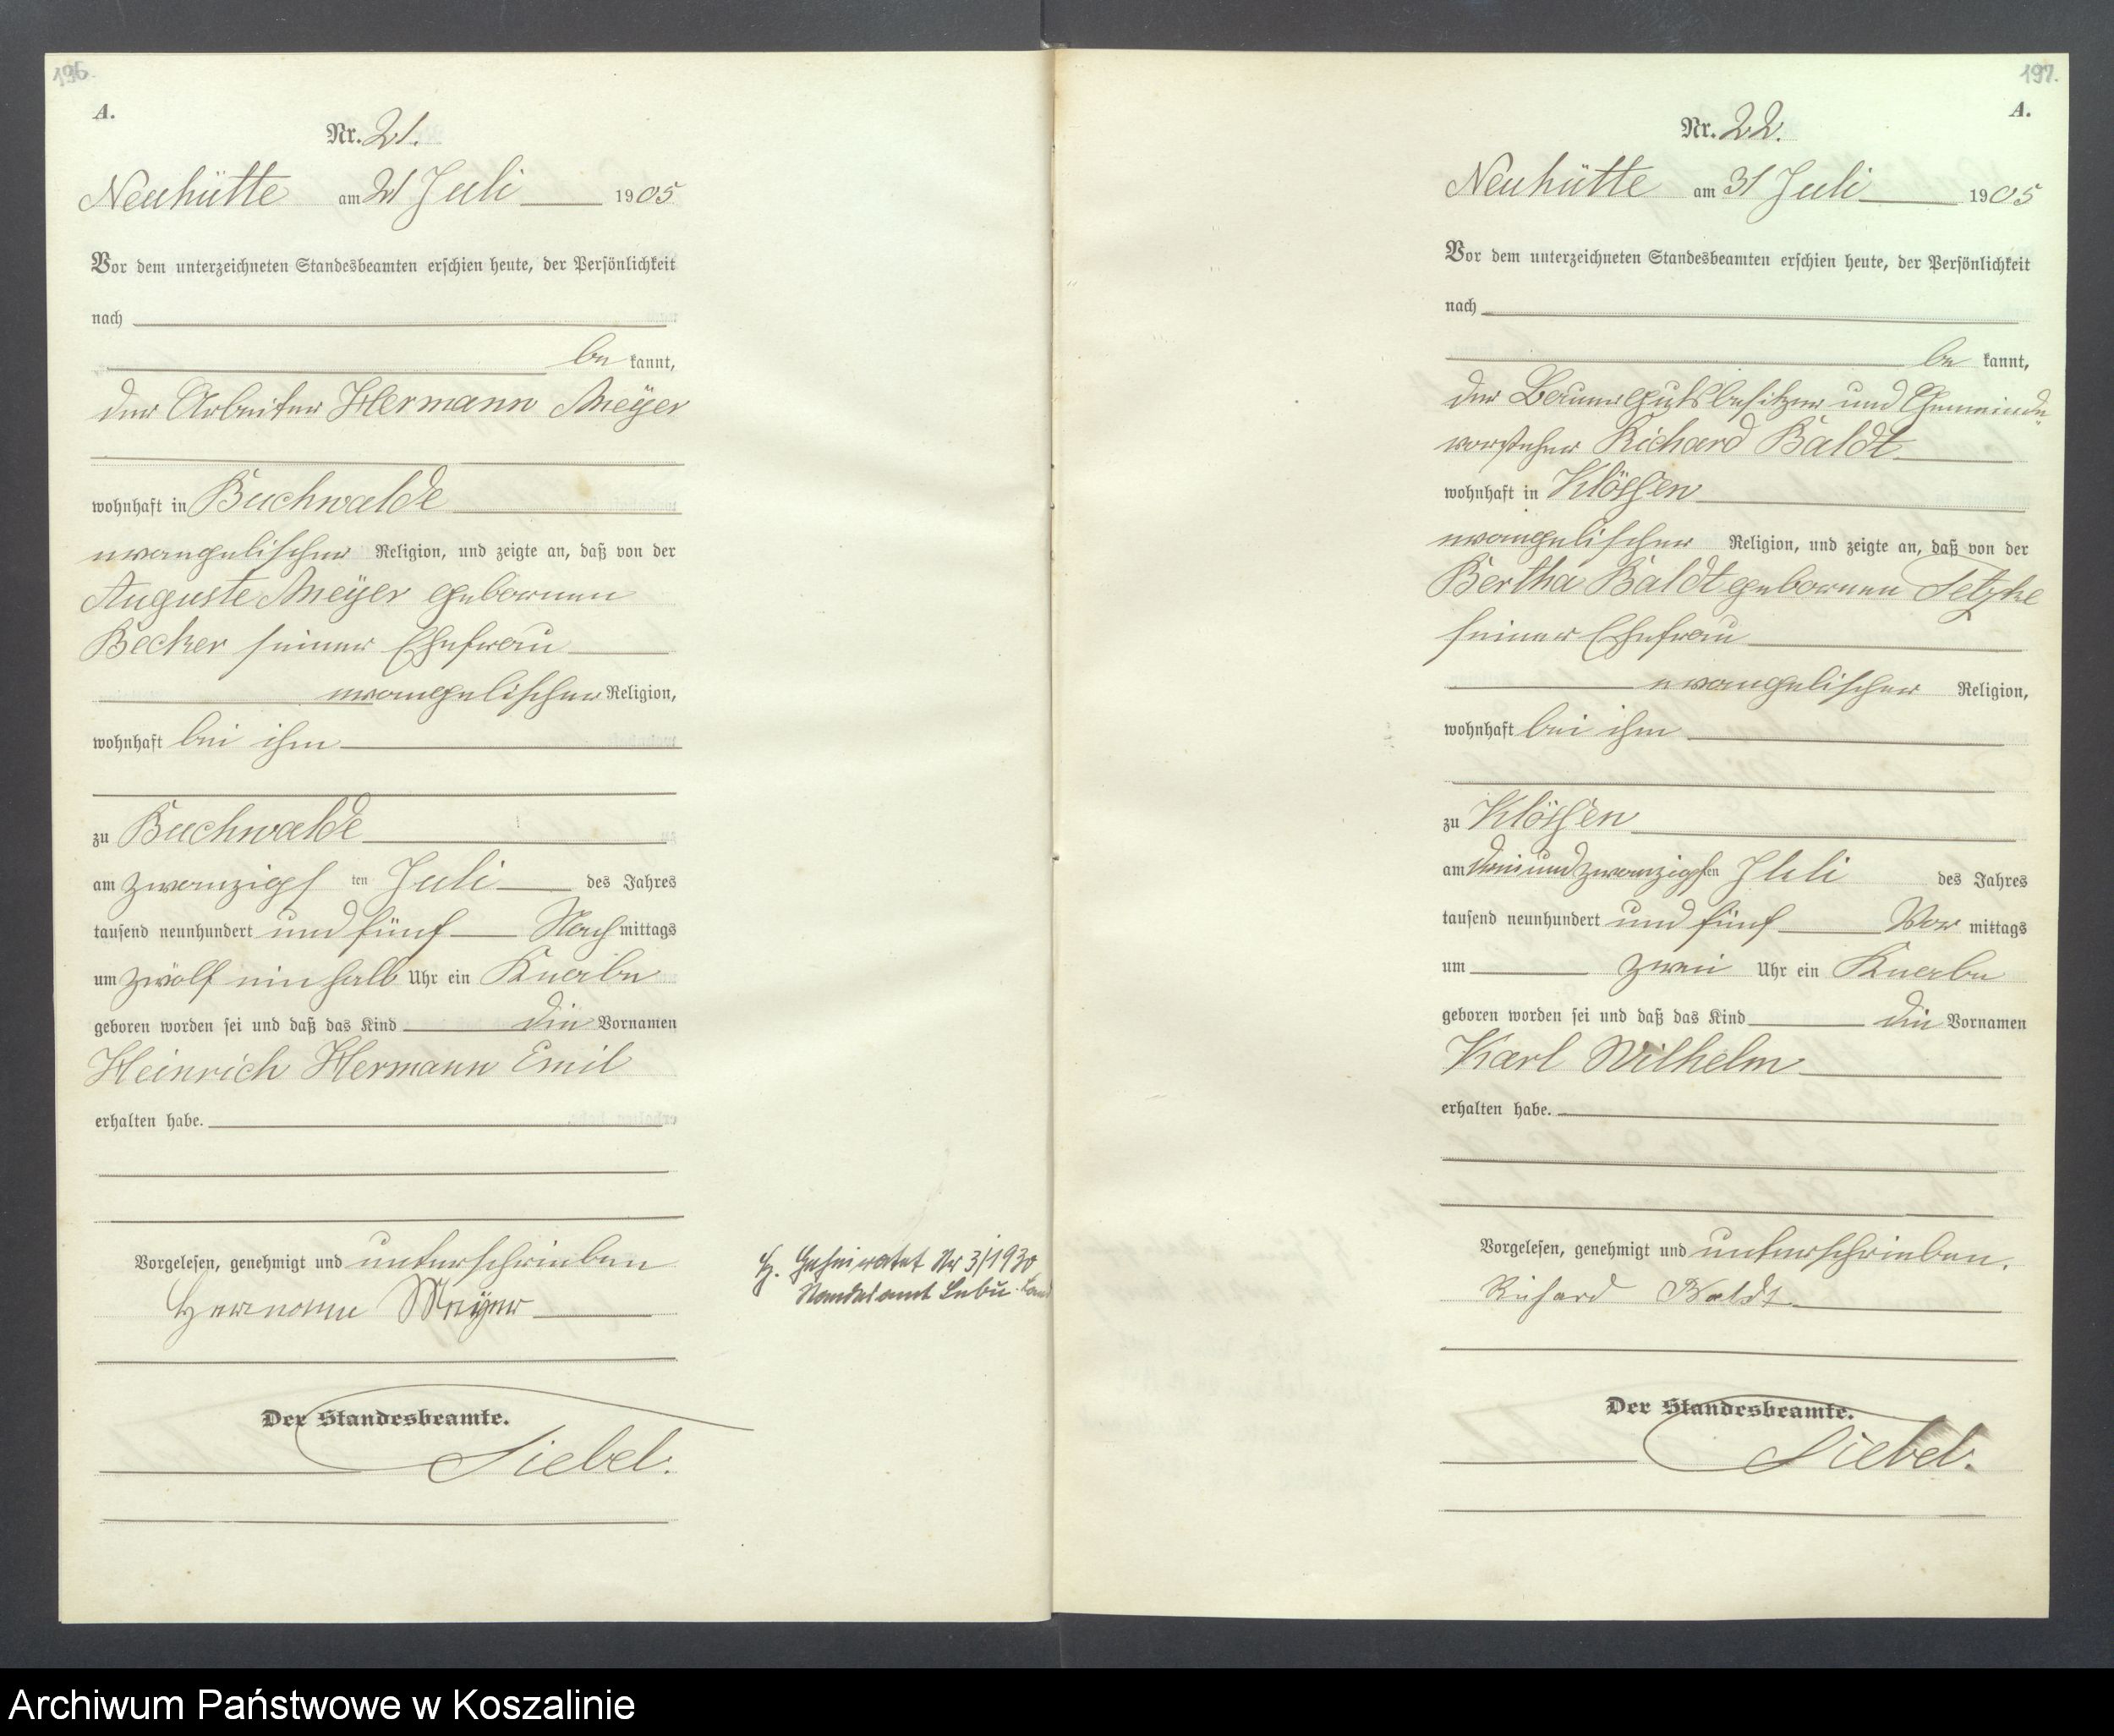 196.
A.
Nr. 21.
Neuhütte am 21 Juli 1905
Vor dem unterzeichneten Standesbeamten erschien heute, der Persönlichkeit
nach
be kannt,
der Arbeiter Hermann Meÿer
wohnhaft in Buchwalde
evangelischer Religion, und zeigte an, daß von der
Auguste Meÿer gebornen
Becker seiner Ehefrau
evangelischer Religion,
wohnhaft bei ihm
zu Buchwalde
am zwanzigsten Juli des Jahres
tausend neunhundert und fünf Nach mittags
um zwölf ein halb Uhr ein Knabe
geboren worden sei und daß das Kind die Vornamen
Heinrich Hermann Emil
erhalten habe.
Vorgelesen, genehmigt und unterschrieben
Hermann Meÿer
Der Standesbeamte.
Siebel.
H. Geheiratet Nr 3/1930
Standesamt
197.
A.
Nr. 22.
Neuhütte am 31 Juli 1905
Vor dem unterzeichneten Standesbeamten erschien heute, der Persönlichkeit
nach
be kannt,
der Bauergutsbesitzer und Gemeinde-
vorsteher Richard Baldt
wohnhaft in Klößen
evangelischer Religion, und zeigte an, daß von der
Bertha Baldt gebornen Tetzke
seiner Ehefrau
evangelischer Religion,
wohnhaft bei ihm
zu Klößen
am dreiundzwanzigsten Juli des Jahres
tausend neunhundert und fünf Vor mittags
um zwei Uhr ein Knabe
geboren worden sei und daß das Kind die Vornamen
Karl Wilhelm
erhalten habe.
Vorgelesen, genehmigt und unterschrieben.
Richard Baldt
Der Standesbeamte.
Siebel.
Archiwum Państwowe w Koszalinie